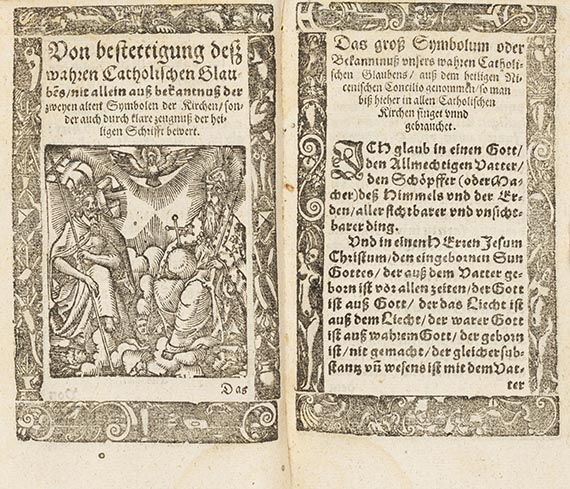 Von bestettigung deß
wahren Catholischen Glau-
bẽs/ nit allein auß bekantnuß der
zweyen alten Symbolen der Kirchen/ son-
der auch durch klare zeugnuß der hei-
ligen Schrifft bewert.
Das
Das groß Symbolum oder
Bekanntnuß vnsers wahren Catholi-
schen Glaubens/ auß dem heiligen Ni-
cenischen Concilio genommen/ so man
biß hieher in allen Catholischen
Kirchen singet vnnd
gebrauchet.
ICH glaub in einen Gott/
den Allmechtigen Vatter/
den Schöpffer (oder Ma-
cher) deß Himmels vnd der Er-
den/ aller sichtbarer vnd vnsicht-
barer ding.
Vnd in einen HErren Jesum
Christum/ den eingebornen Sun
Gottes/ der auß dem Vatter ge-
born ist vor allen zeiten/ der Gott
ist auß Gott/ der das Liecht ist
auß dem Liecht/ der warer Gott
ist auß wahrem Gott/ der geborn
ist/ nit gemacht/ der gleicher sub-
stantz vñ wesens ist mit dem Vat-
ter